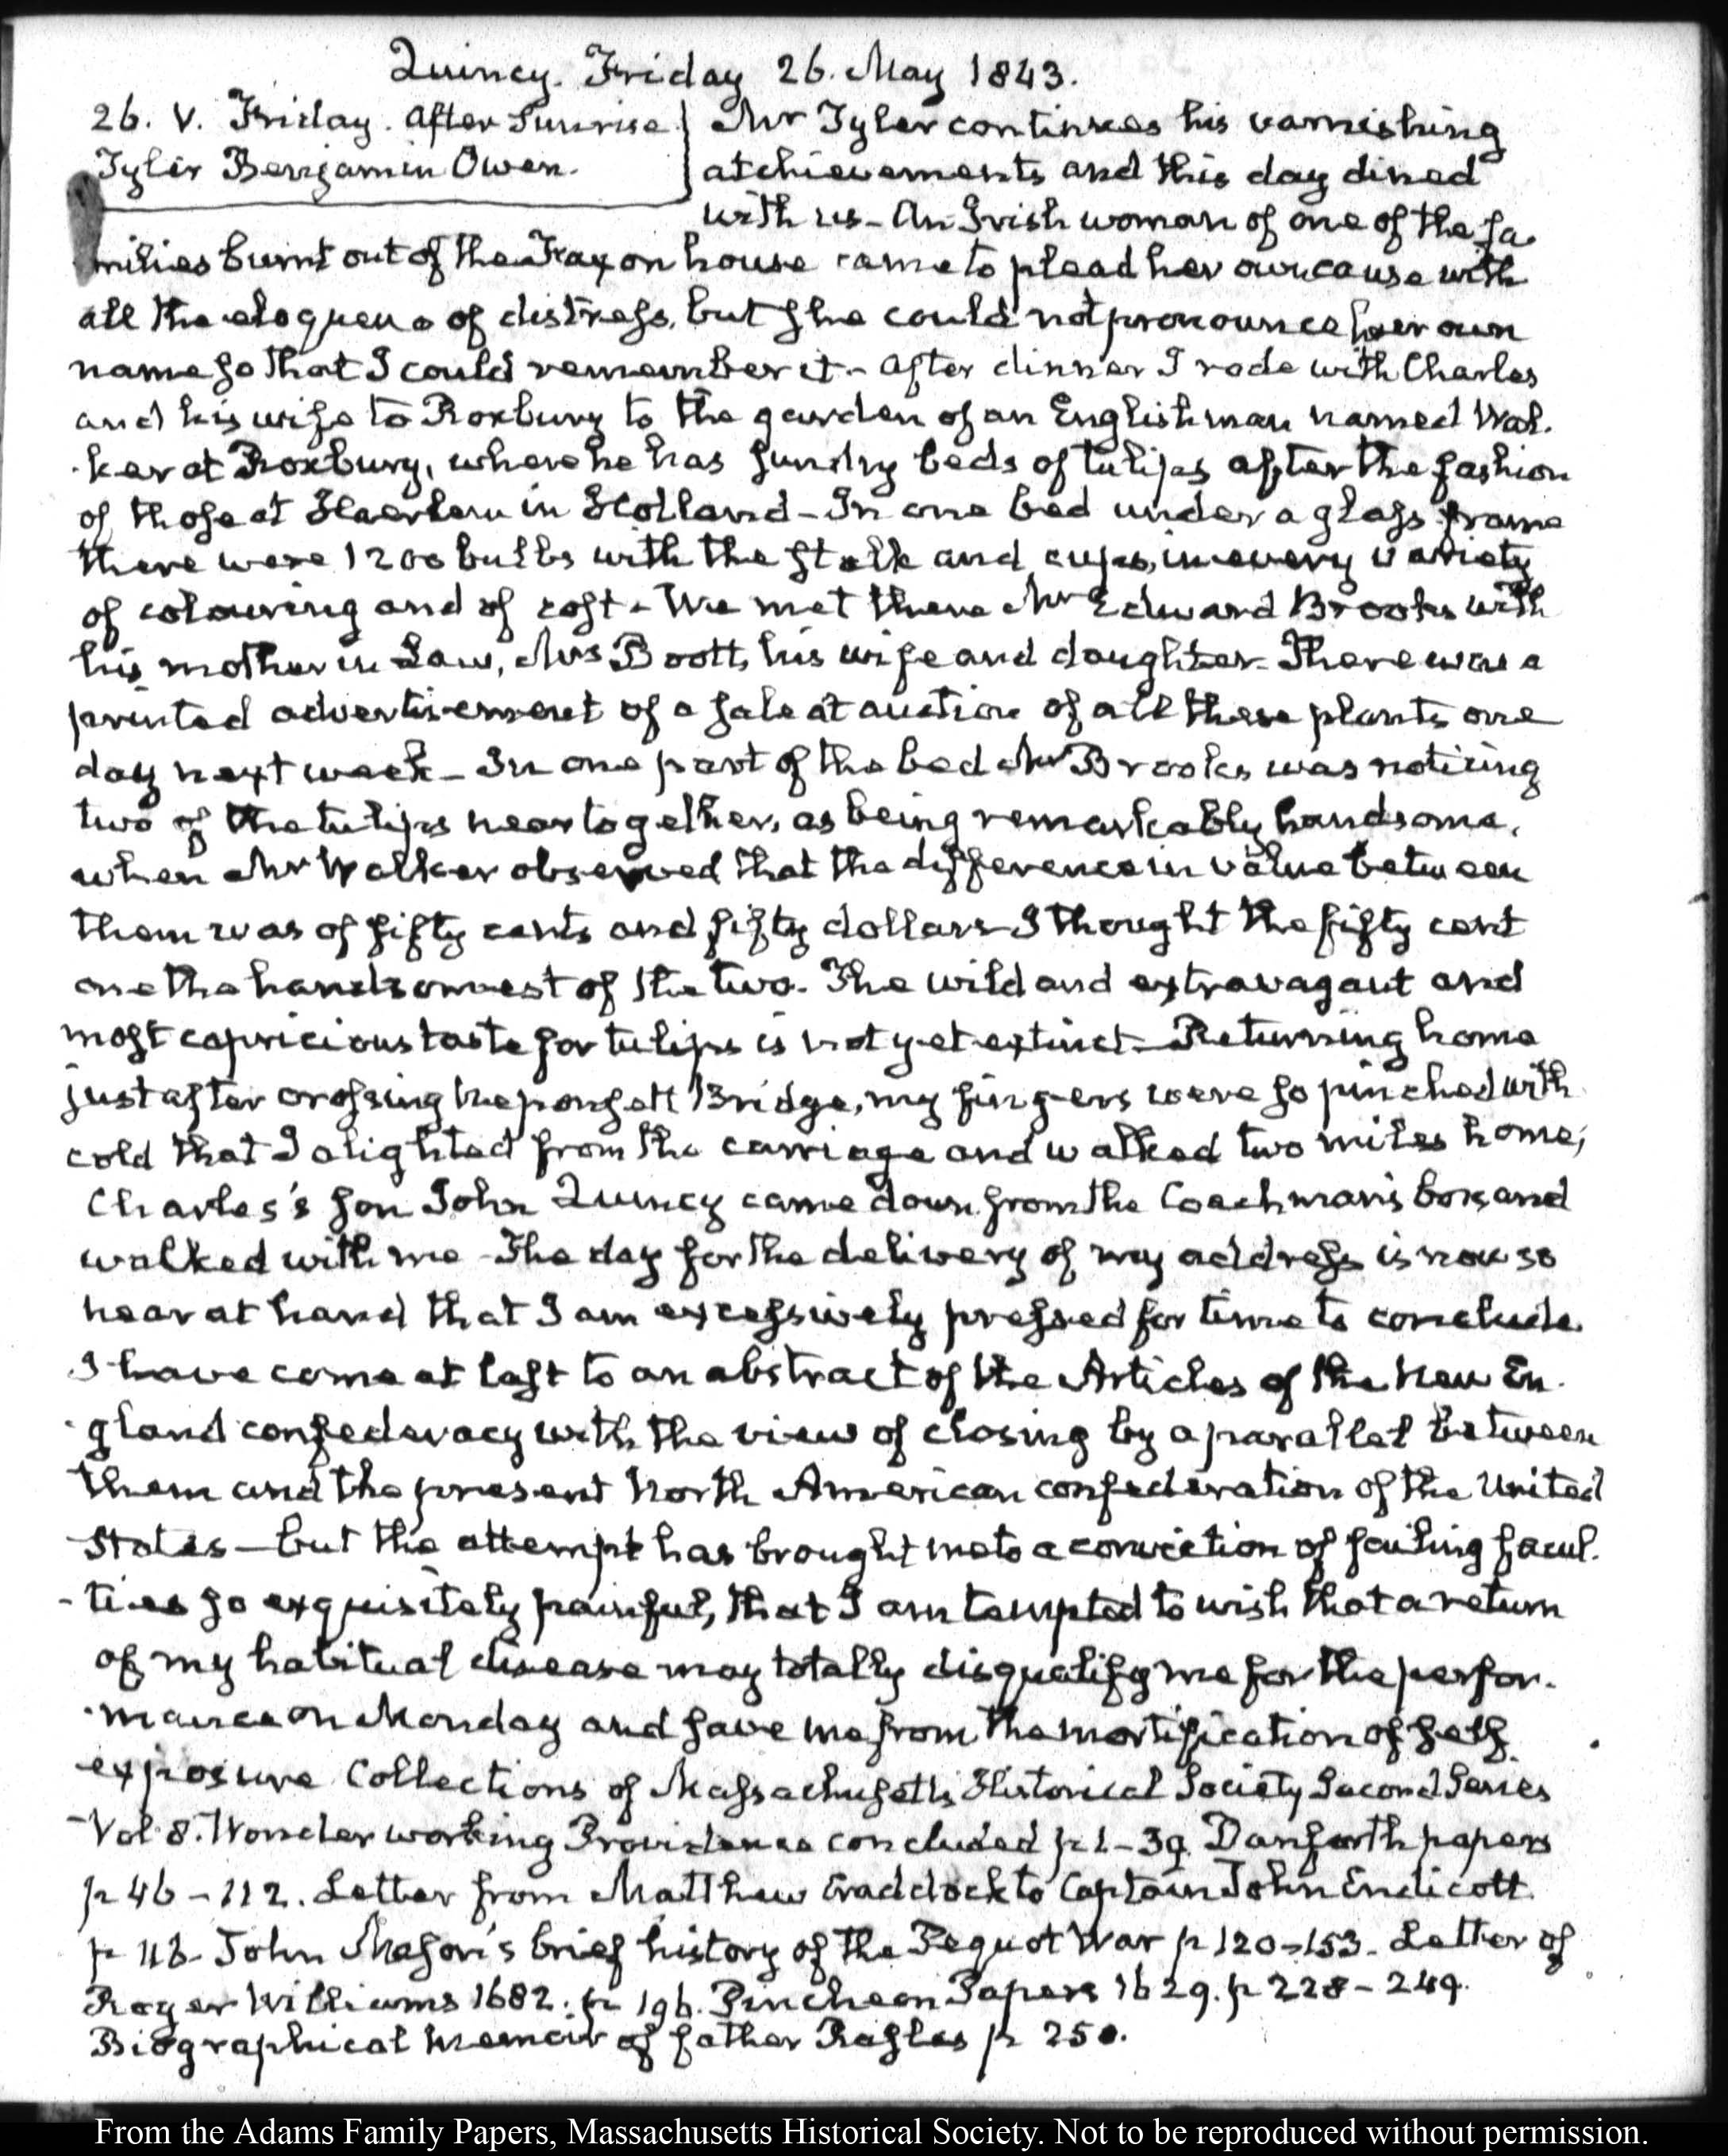 Quincy. Friday 26. May 1843.
26. V. Friday. After Sunrise
Tyler Benjamin Owen.
Mr Tyler continues his varnishing
atchievements and this day dined
with us - An Irish woman of one of the fa-
milies burnt out of the house came to plead her own cause with
all the eloquence of distress, but she could not pronounce her own
name so that I could remember it - After dinner I rode with Charles
and his wife to Roxbury to the garden of an Englishman named Wal-
-ker at Roxbury, where he has sundry beds of tulips after the fashion
of those at Haerlem in Holland - In one bed under a glass frame
there were 1200 bulbs with the stalk and cups, in every variety
of colouring and of cost - We met there Mr Edward Brooks with
his mother in Law, Mrs Boott, his wife and daughter - There was a
printed advertisement of a sale at auction of all these plants one
day next week - In one part of the bed Mr Brooks was noticing
two of the tulips near together, as being remarkably handsome,
when Mr Walker observed that the difference in value between
them was of fifty cents and fifty dollars - I thought the fifty cent
one the handsomest of the two. The wild and extravagant and
most capricious taste for tulips is not yet extinct - Returning home
just after crossing Neponsett Bridge, my fingers were so pinched with
cold that I alighted from the carriage and walked two miles home;
Charles's son John Quincy came down from the Coachman's box and
walked with me - The day for the delivery of my address is now so
near at hand that I am excessively pressed for time to conclude
I have come at last to an abstract of the Articles of the New En-
-gland confederacy with the view of closing by a parallel between
them and the present North American confederation of the United
States - but the attempt has brought me to a conviction of failing facul-
-ties so exquisitely painful, that I am tempted to wish that a return
of my habitual disease may totally disqualify me for the perfor-
-mance on Monday and save me from the mortification of self
exposure Collections of Massachusetts Historical Society Second Series
Vol. 8. Wonder working Providence concluded p 1-39. Danforth papers
p 46-112. Letter from Matthew Craddock to Captain John Endicott
p 116- John Mason's brief history of the Pequot War p 120-153. Letter of
Roger Williams 1682. p 196. Pincheon Papers 1629. p 228-249.
Biographical memoir of father Rasles p 250.
From the Adams Family Papers, Massachusetts Historical Society. Not to be reproduced without permission.